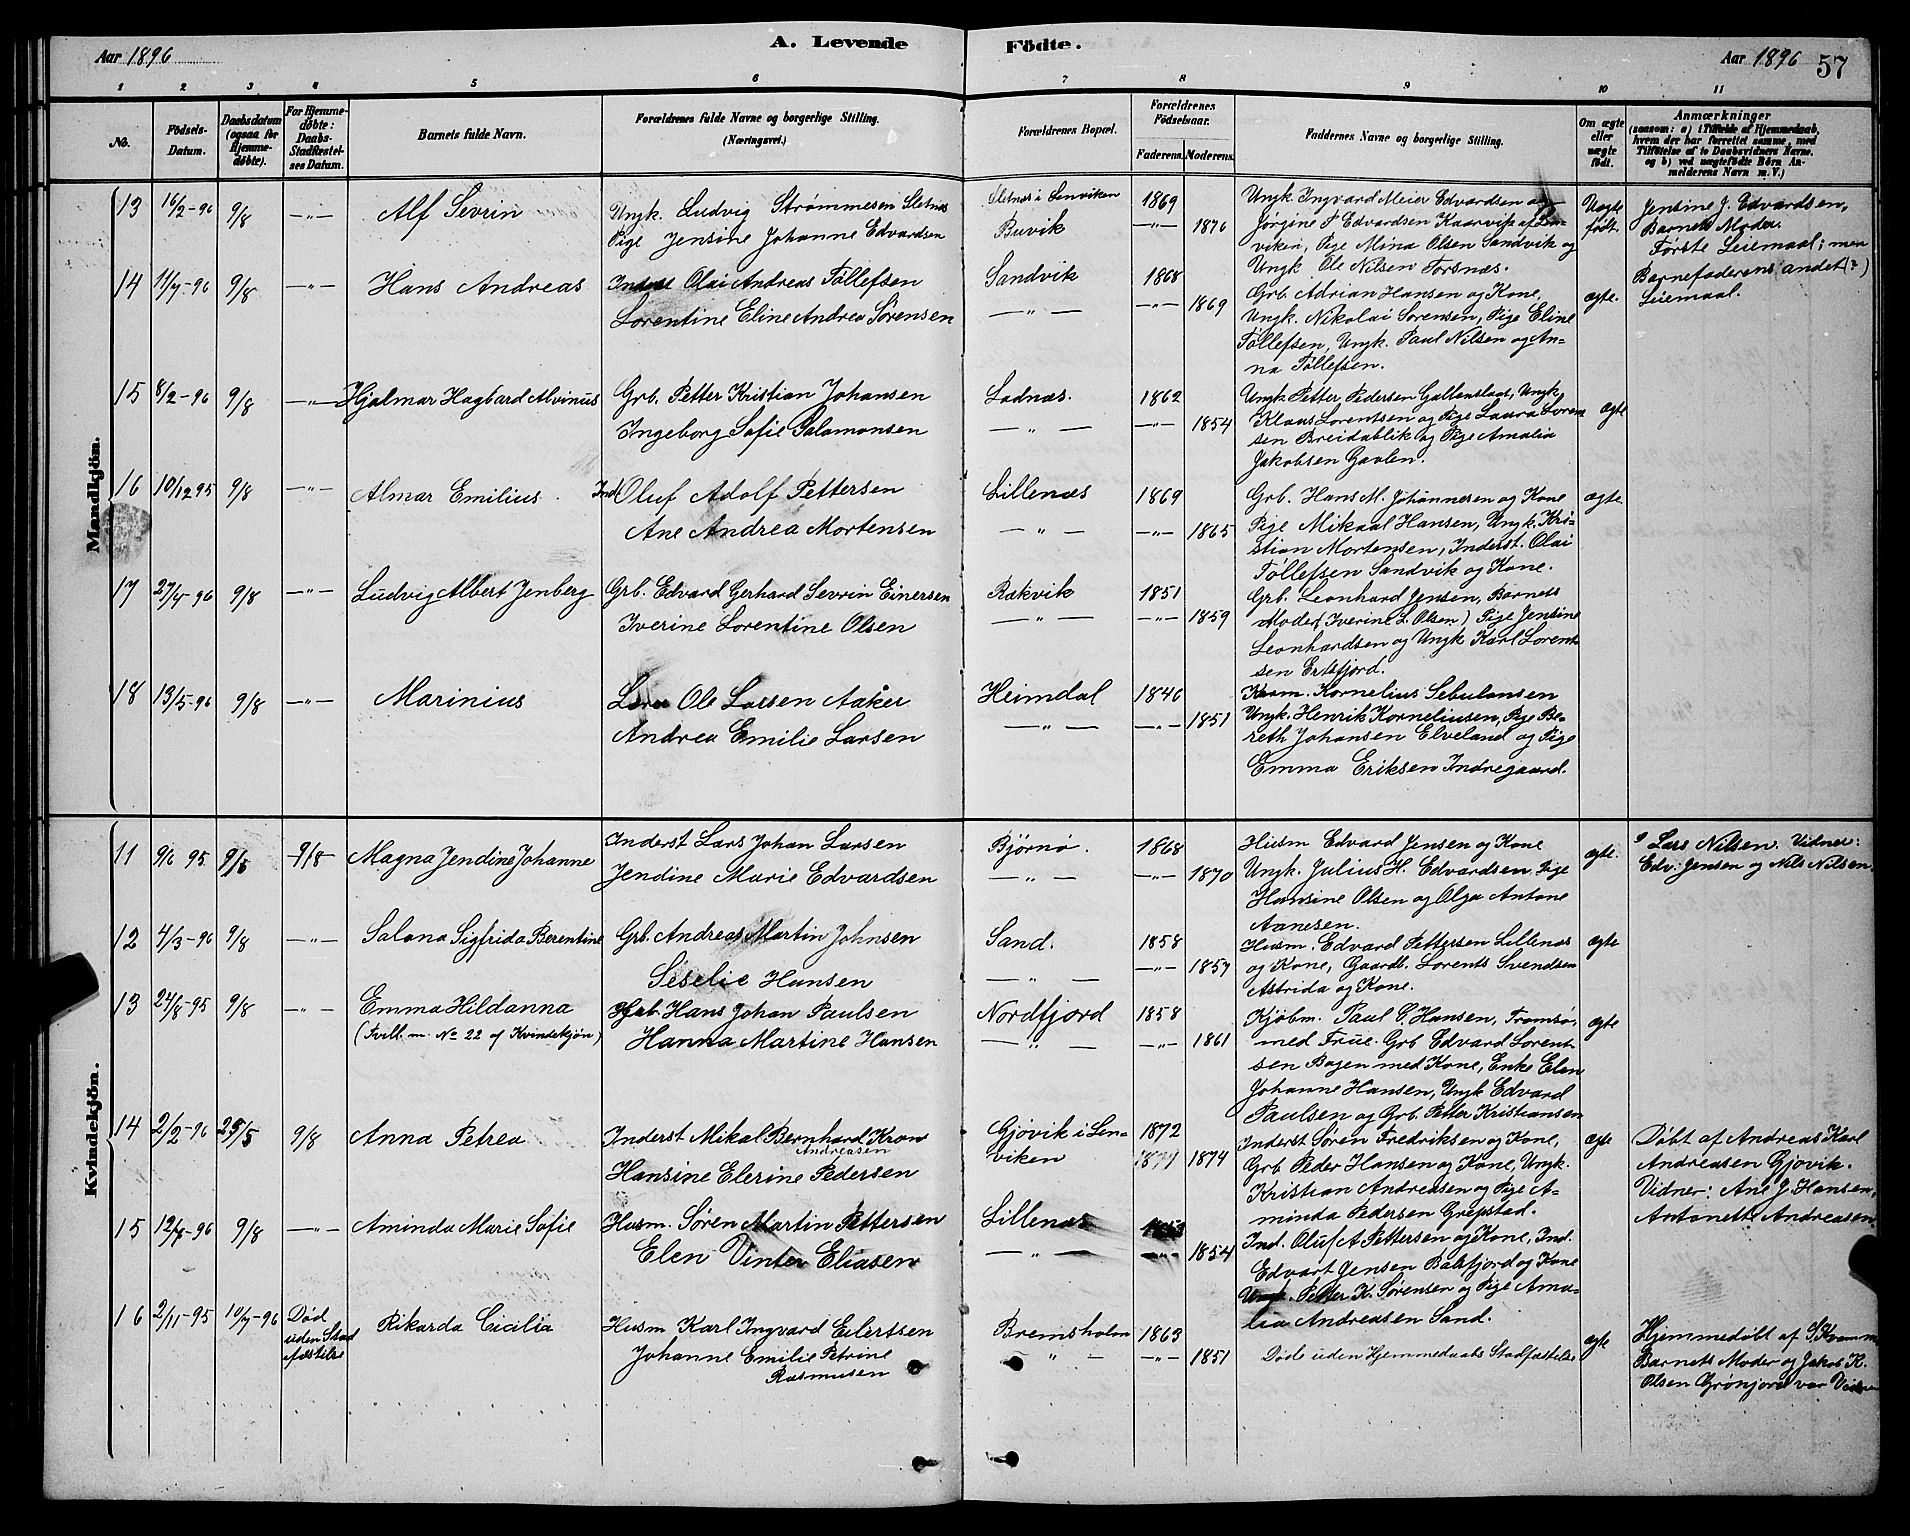 Aar 1896
A. Levende Födte.
Aar 1896
57
1 2 3 4 5 6 7 8 9 10 11
No.
Födsels-Datum.
Daabsdatum (ogsaa for Hjemmedøbte).
For Hjemmedøbte: Daabs-Stadfæstelses Datum.
Barnets fulde Navn.
Forældrenes fulde Navne og borgerlige Stilling. (Næringsvei.)
Forældrenes Bopæl.
Forældrenes Födselsaar.
Faderens. Moderens.
Faddernes Navne og borgerlige Stilling.
Om ægte eller uægte født.
Anmærkninger
(saasom: a) i Tilfælde af Hjemmedaab, hvem der har forrettet samme, med Tilföielse af to Daabsvidners Navne, og b) ved uægtefødte Börn Anmelderens Navn m. V.)
Mandkjön.
13 16/2-96 9/8 —"— Alf Sevrin
Ungk. Ludvig Strømmesen Sletnæs
Pige Jensine Johanne Edvardsen
Sletnæs i Lenviken 1869
Buvik —"— 1876
Ungk Ingvard Meier Edvardsen og
Jørgine P Edvardsen Kaarvik af Len-
viken, Pige Mina Olsen Sandvik og
Ungk Ole Nilsen Forsnæs.
Uægte født.
Jensine J. Edvardsen,
Barnets Moder.
Første Leiemaal; men
Barnefaderens andet (?)
Leiemaal.
14 11/7-96 9/8 —"— Hans Andreas
Inderst Olai Andreas Tøllefsen
Lorentine Eline Andrea Sørensen
Sandvik 1868
—"— —"— 1869
Grb. Adrian Hansen og Kone,
Ungk. Nikolai Sørensen, Pige Eline
Tøllefsen, Ungk. Paul Nilsen og An-
na Tøllefsen.
ægte.
15 8/2-96 9/8 —"— Hjalmar Hagbard Alvinus
Grb. Petter Kristian Johansen
Ingeborg Sofie Salamonsen
Ladnæs. 1862
—"— —"— 1854
Ungk Petter Pedersen Galtenslaat, Ungk
Klaus Lorentsen og Pige Laura Loren
sen Breidablik og Pige Amalia
Jakobsen Gavlen.
ægte
16 10/12 95 9/8 —"— Almar Emilius.
Ind Oluf Adolf Pettersen
Ane Andrea Mortensen
Lillenæs 1869
—"— —"— 1865
Grb. Hans M. Johannesen og Kone
Pige Mikaal Hansen, Ungk. Kri-
stian Mortensen, Inderst. Olai
Tøllefsen Sandvik og Kone.
ægte.
17 27/4-96 9/8 —"— Ludvig Albert Jenberg
Grb. Edvard Gerhard Sevrin Einersen
Iverine Lorentine Olsen
Rækvik 1851
—"— —"— 1859
Grb. Leonhard Jensen, Barnets
Moder (Iverine L. Olsen) Pige Jensine
Leonhardsen og Ungk Karl Lorent
sen Ersfjord.
18 13/5-96 9/8 —"— Marinius
Lærer Ole Larsen Aaker
Andrea Emilie Larsen
Heimdal 1846
—"— —"— 1851
Kornelius Sebulonsen
Ungk. Henrik Korneliusen, Pige Be-
reth Johansen Elveland og Pige
Emma Eriksen Indregaard.
Kvindekjön.
11 9/6 95. 9/8 Magna Jendine Johanne
Inderst Lars Johan Larsen
Jendine Marie Edvardsen
Bjørnø. 1868
—"— —"— 1870
Husm Edvard Jensen og Kone
Ungk. Julius H. Edvardsen, Pige
Hansine Olsen og Olga Antone
Aanesen.
ægte.
Lars Nilsen. Vidner:
Edv. Jensen og Nils Nilsen.
12 4/3-96 9/8 —"— Salona Sigfrida Berentine
Grb. Andreas Martin Johnsen
Siselie Hansen
Sand. 1858
—"— —"— 1857
Husm. Edvard Pettersen Lillenæs
og Kone, Gaardb. Lorents Svendsen
Astrida og Kone.
ægte
13 24/8-95 9/8 —"— Emma Hildanna
(Tvill. m. No 22 af Kvindekjøn)
Grb. Hans Johan Paulsen
Hanna Martine Hansen
Nordfjord 1858
—"— —"— 1861
Kjøbm. Paul C. Hansen, Tromsø,
med Frue. Grb Edvard Lorent
sen Bogen med Kone, Enke Elen
Johanne Hansen, Ungk Edvard
Paulsen og Grb. Petter Kristiansen
ægte
14 2/2-96 25/5 9/8 Anna Petrea
Inderst Mikal Bernhard Kron
Andreasen
Hansine Elerine Pedersen
Gjøvik i Len-
viken
1872
1874 1874
Inderst Søren Fredriksen og Kone,
Grb Peder Hansen og Kone, Ungk.
Kristian Andreasen og Pige A-
minda Pedersen Grepstad.
ægte
Døbt af Andreas Karl
Andreasen Gjøvik.
Vidner: Ane J. Hansen,
Antonette Andreasen
15 12/4-96 9/8 —"— Aminda Marie Sofie
Husm. Søren Martin Pettersen
Elen Vinter Eliasen
Lillenæs 1853
—"— —"— 1854
Ind. Oluf A Pettersen og Kone, Ind.
Edvart Jensen Balsfjord og Kone
Ungk. Petter K. Sørensen og Pige Ama-
lia Andreasen Sand.
16 2/11-95 10/7-96
Død
uden Stad
fæstelse
Rikarda Cicilia
Husm Karl Ingvard Eilertsen
Johanne Emilie Petrine
Rasmusen
Bremsholm 1863
" — —"— 1851
Døde uden Hjemmedaabs Stadfæstelse
ægte
Hjemmedøbt af
Barnets Moder og Jakob K.
Olsen Grønjord var Vidner